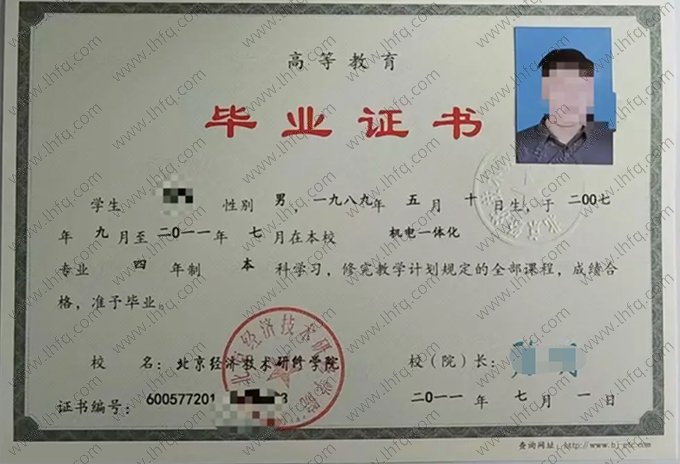 高等教育
毕业证书
学生 性别 男，一九八九年 五 月 十 日生，于 二00七
年 九 月至 二0一一 年 七 月在本校 机电一体化
专业 四 年制 本 科学习，修完教学计划规定的全部课程，成绩合
格，准予毕业。
校 名：北京经济技术研修学院 校（院）长：
证书编号：600577201 二0一一 年 七 月 一 日
www.lhfq.com